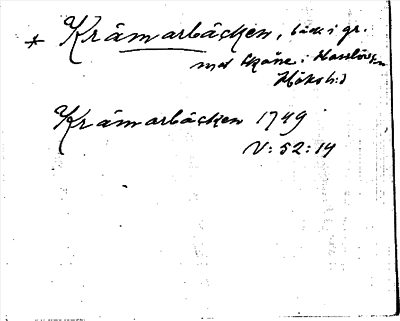 * Krämarbäcken, bäck i gr.
mot Skåne i Hasslövs sn
Höks h:d
Krämarbäcken 1749
V: 52: 14